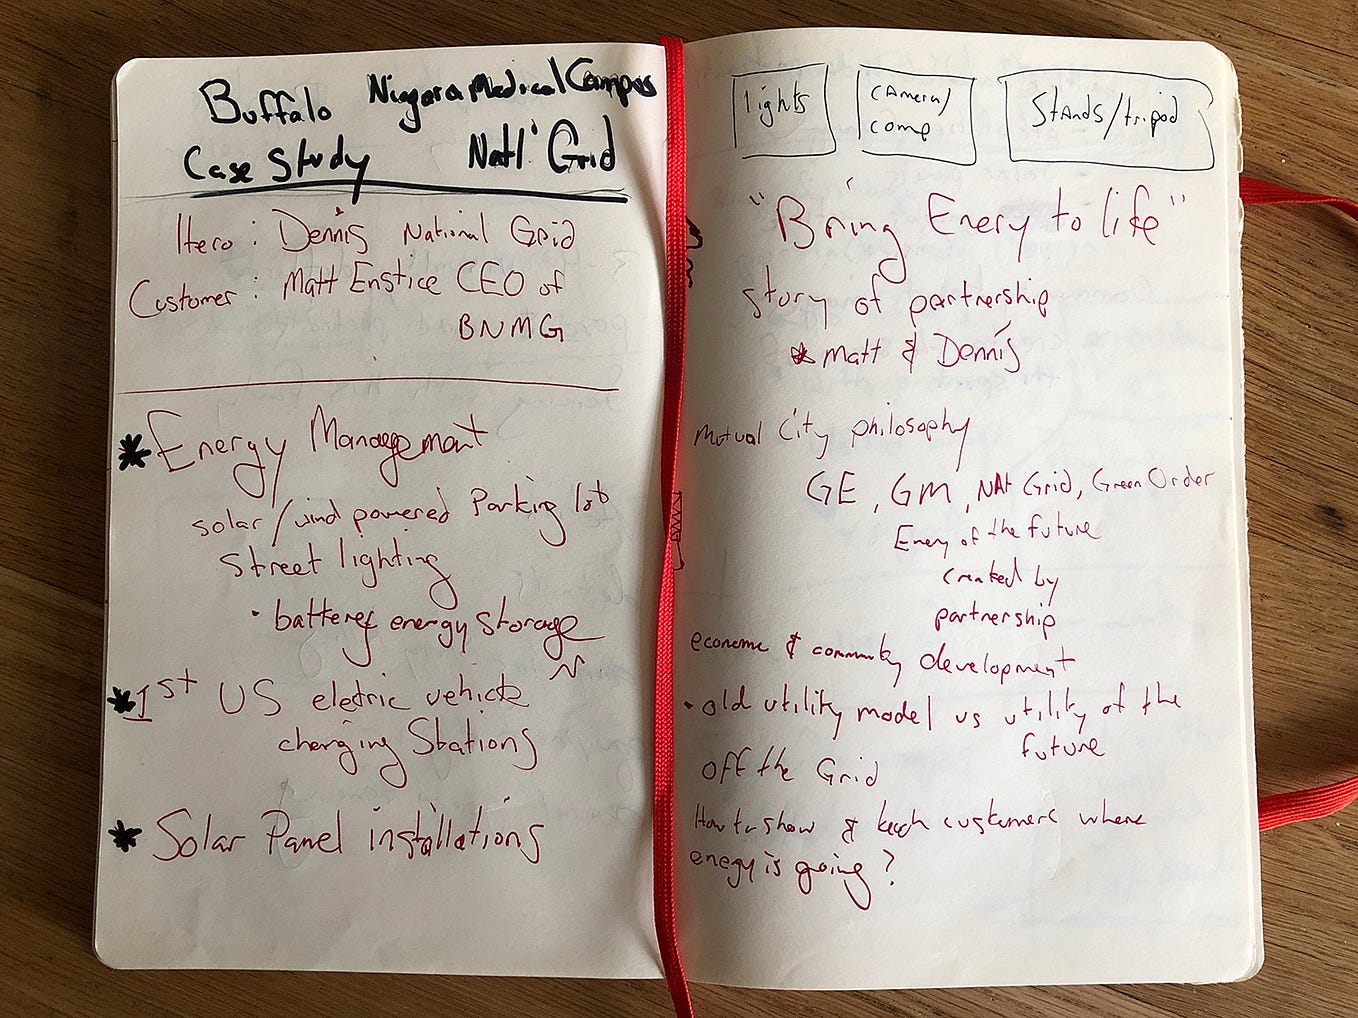 Buffalo Niagara Medical Campus
Case Study Natl' Grid
Hero : Dennis National Grid
Customer : Matt Enstice CEO of
BNMG
* Energy Management
solar/wind powered Parking lot
street lighting
• batterey energy storage
* 1st US electric vehicle
charging Stations
* Solar Panel installations
lights
camera/
comp
Stands/tripod
"Bring Enery to life"
story of partnership
* Matt & Dennis
Mutual City philosophy
GE, GM, Nat Grid, Green Order
Enery of the future
created by
partnership
econome & community development
• old utility model vs utility of the
future
off the Grid
How to show & teach customers where
enegy is going?